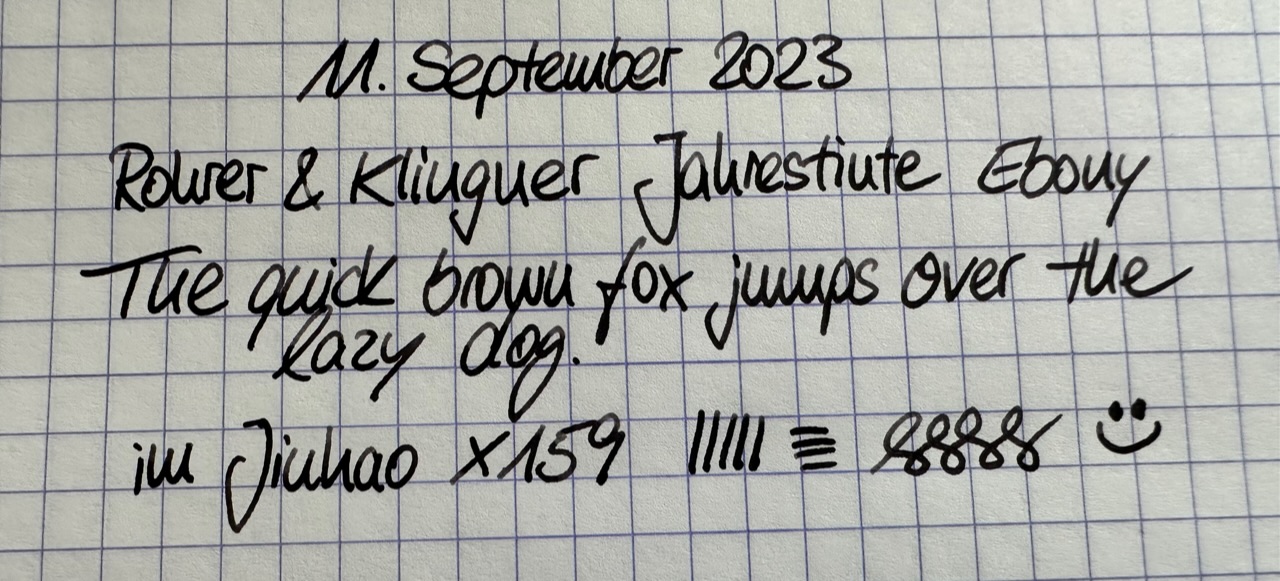 11. September 2023
Rohrer & Klingner Jahrestinte Ebony
The quick brown fox jumps over the
lazy dog.
im Jinhao X159